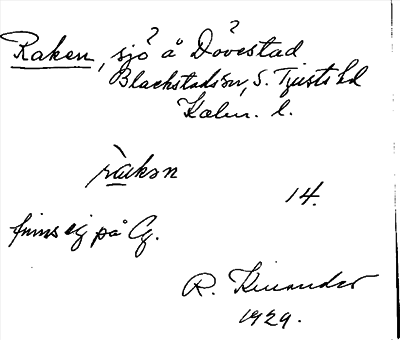 Raken, sjö? å Dövestad?
Blackstads sn, S. Tjusts hd
Kalm. l.
ràkən
14.
finns ej på Cg.
R. Kinander
1929.